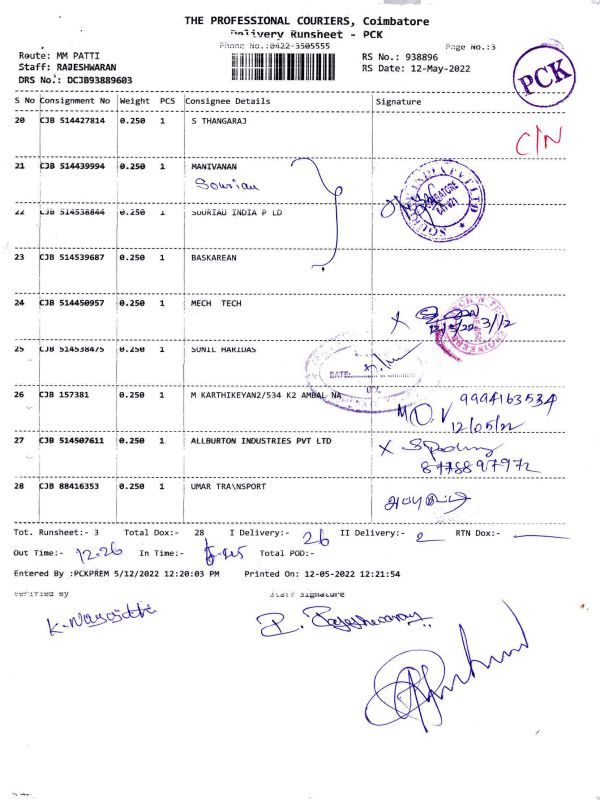 THE PROFESSIONAL COURIERS, Coimbatore
Delivery Runsheet - PCK
Phone No.:0422-3505555
Page No.:3
Route: MM PATTI
RS No.: 938896
Staff: RAJESHWARAN
RS Date: 12-May-2022
DRS No.: DCJB93889603
PCK
S No Consignment No Weight PCS Consignee Details Signature
20 CJB 514427814 0.250 1 S THANGARAJ
C/N
21 CJB 514439994 0.250 1 MANIVANAN
Souriau
22 CJB 514538844 0.250 1 SOURIAU INDIA P LD
23 CJB 514539687 0.250 1 BASKAREAN
24 CJB 514450957 0.250 1 MECH TECH
X 12/5/22 3/12
25 CJB 514538475 0.250 1 SUNIL HARIDAS
DATE:
26 CJB 157381 0.250 1 M KARTHIKEYAN2/534 K2 AMBAL NA
9994163534
12/05/22
27 CJB 514507611 0.250 1 ALLBURTON INDUSTRIES PVT LTD
X
8778897972
28 CJB 88416353 0.250 1 UMAR TRA\NSPORT
Tot. Runsheet:- 3 Total Dox:- 28 I Delivery:- 26 II Delivery:- 2 RTN Dox:- —
Out Time:- 12.26 In Time:- Total POD:-
Entered By :PCKPREM 5/12/2022 12:20:03 PM Printed On: 12-05-2022 12:21:54
Verified By Staff Signature
P. Rajeshwaran